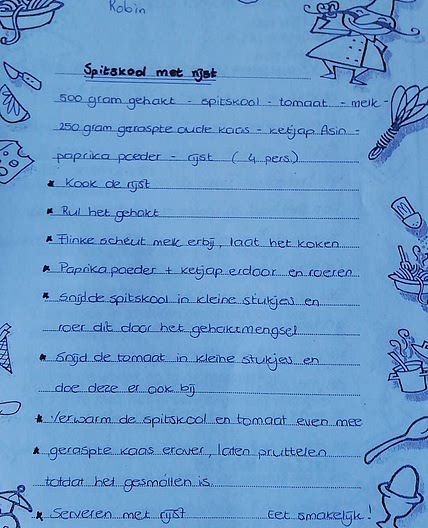 Robin
Spitskool met rijst
500 gram gehakt - spitskool - tomaat - melk -
250 gram geraspte oude kaas - ketjap Asin -
paprika poeder - rijst (4 pers.)
* Kook de rijst
* Rul het gehakt
* Flinke scheut melk erbij, laat het koken
* Paprikapoeder + ketjap erdoor en roeren
* Snijd de spitskool in kleine stukjes en
roer dit door het gehaktmengsel
* Snijd de tomaat in kleine stukjes en
doe deze er ook bij
* Verwarm de spitskool en tomaat even mee
* geraspte kaas erover, laten pruttelen
totdat het gesmolten is.
* Serveren met rijst Eet smakelijk!